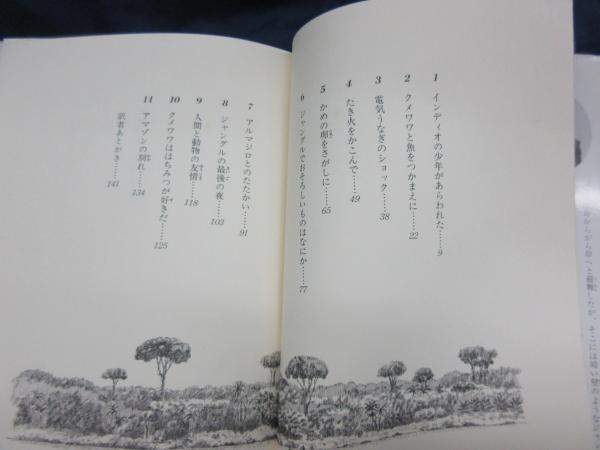 1 インディオの少年があらわれた……9
2 クメワワと魚をつかまえに……22
3 電気うなぎのショック……38
4 たき火をかこんで……49
5 かめの卵をさがしに……65
6 ジャングルでおそろしいものはなにか……77
7 アルマジロとのたたかい……91
8 ジャングルの最後の夜……103
9 人間と動物の友情……118
10 クメワワははちみつが好きだ……125
11 アマゾンの別れ……134
訳者あとがき……141